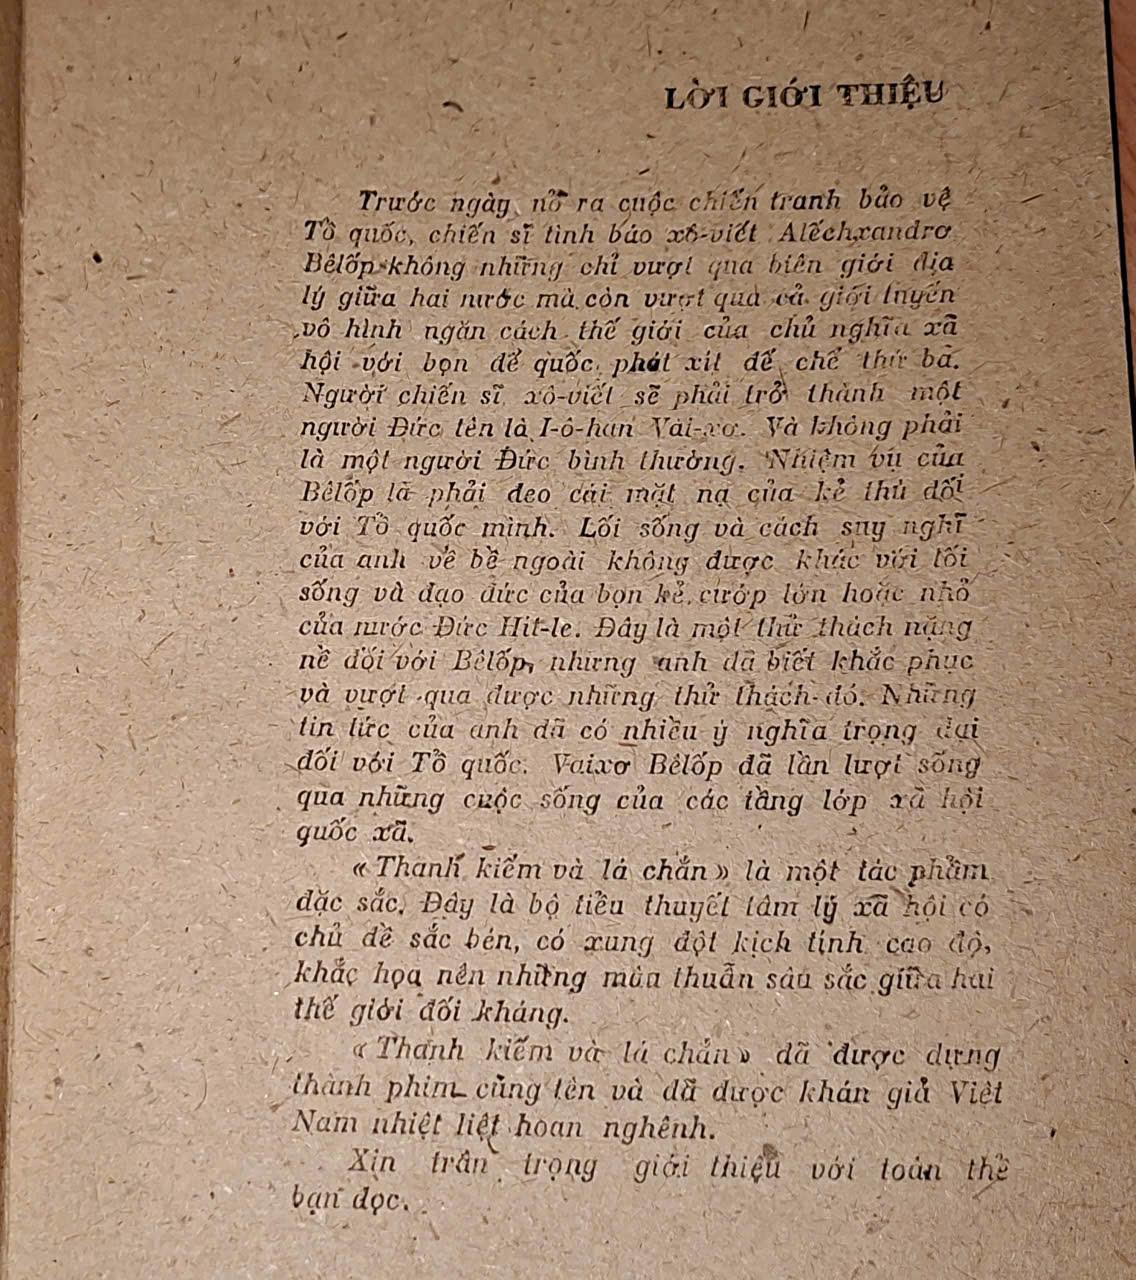 LỜI GIỚI THIỆU
Trước ngày nổ ra cuộc chiến tranh bảo vệ
Tổ quốc, chiến sĩ tình báo xô-viết Alếchxandrơ
Bêlốp không những chỉ vượt qua biên giới địa
lý giữa hai nước mà còn vượt qua cả giới tuyến
vô hình ngăn cách thế giới của chủ nghĩa xã
hội với bọn đế quốc phát xít đế chế thứ ba.
Người chiến sĩ xô-viết sẽ phải trở thành một
người Đức tên là I-ô-han Vai-xơ. Và không phải
là một người Đức bình thường. Nhiệm vụ của
Bêlốp là phải đeo cái mặt nạ của kẻ thù đối
với Tổ quốc mình. Lối sống và cách suy nghĩ
của anh về bề ngoài không được khác với lối
sống và đạo đức của bọn kẻ cướp lớn hoặc nhỏ
của nước Đức Hit-le. Đây là một thử thách nặng
nề đối với Bêlốp, nhưng anh đã biết khắc phục
và vượt qua được những thử thách đó. Những
tin tức của anh đã có nhiều ý nghĩa trọng đại
đối với Tổ quốc. Vaixơ Bêlốp đã lần lượt sống
qua những cuộc sống của các tầng lớp xã hội
quốc xã.
« Thanh kiếm và lá chắn » là một tác phẩm
đặc sắc. Đây là bộ tiểu thuyết tâm lý xã hội có
chủ đề sắc bén, có xung đột kịch tính cao độ,
khắc họa nên những mâu thuẫn sâu sắc giữa hai
thế giới đối kháng.
« Thanh kiếm và lá chắn » đã được dựng
thành phim cùng tên và đã được khán giả Việt
Nam nhiệt liệt hoan nghênh.
Xin trân trọng giới thiệu với toàn thể
bạn đọc.